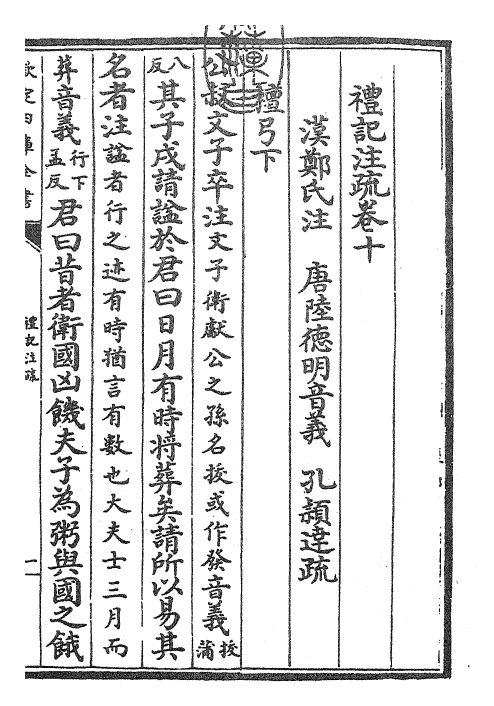 禮記注疏卷十
漢鄭氏注 唐陸德明音義 孔穎達疏
檀弓下
公叔文子卒注文子衛獻公之孫名拔或作發音義拔蒲
八反其子戍請謚於君曰日月有時將葬矣請所以易其
名者注謚者行之迹有時猶言有數也大夫士三月而
葬音義行下孟反君曰昔者衛國凶饑夫子為粥與國之餓
欽定四庫全書
禮記注疏
一